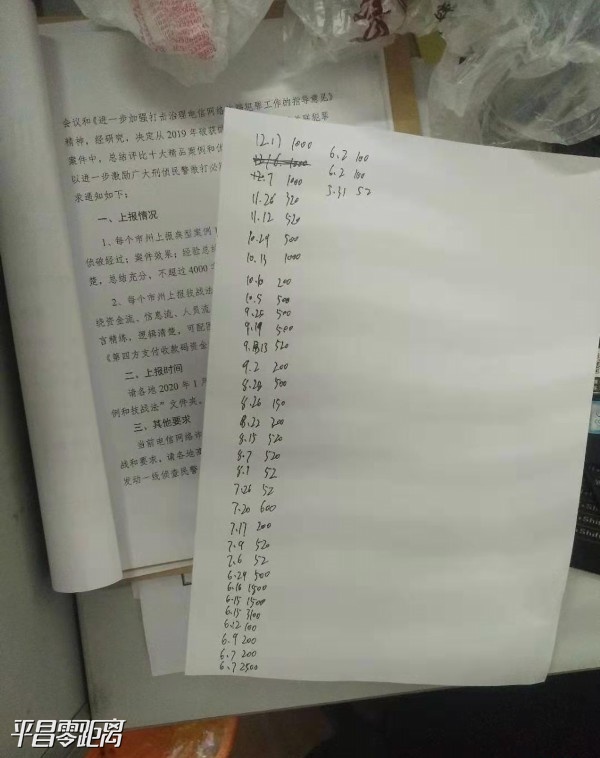 会议和《进一步加强打击治理电信网络
犯罪工作的指导意见》
精神，经研究，决定从2019年破获
案件中，总结评比十大精品案例和优
以进一步激励广大刑侦民警
求通知如下：
一、上报情况
1、每个市州上报典型案例
侦破经过；案件效果；经验总结
楚，总结充分，不超过4000
2、每个市州上报技战法
绕资金流、信息流、人员流
言精炼，逻辑清楚，可配图
《第四方支付收款码资金
二、上报时间
请各地2020年1月
例和技战法”文件夹。
三、其他要求
当前电信网络诈
战和要求，请各地
发动一线侦查民警
12.17 1000
12.16 1000
12.7 1000
11.26 320
11.12 520
10.29 500
10.13 1000
10.6 200
10.5 500
9.25 500
9.19 500
9.13 520
9.2 200
8.28 500
8.26 150
8.22 200
8.15 520
8.7 520
8.1 52
7.26 52
7.20 600
7.17 200
7.9 520
7.6 52
6.29 500
6.16 1500
6.15 1500
6.15 3100
6.12 100
6.9 200
6.7 200
6.7 2500
6.2 100
6.2 100
5.31 52
平昌零距离